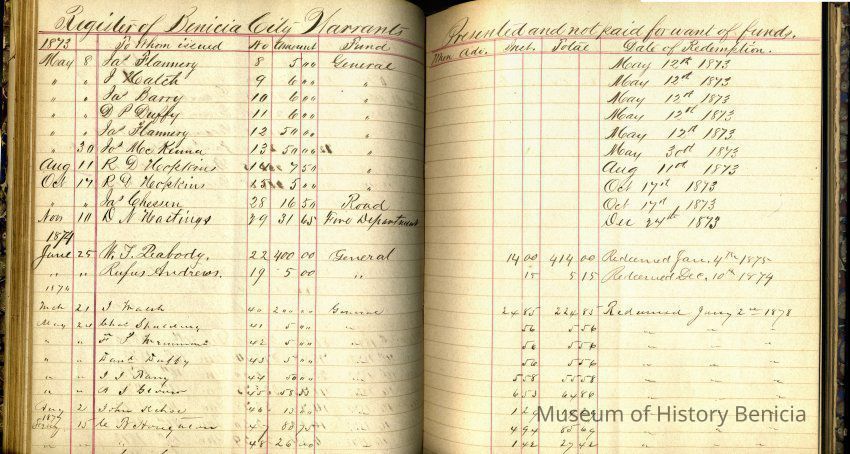 Register of Benicia City Warrants Presented and not paid for want of funds.
1873 To Whom issued No Amount Fund When Adv. Int. Total Date of Redemption.
May 8 Jas Flannery 8 5 00 General May 12th 1873
" " J Hatch 9 6 00 " May 12th 1873
" " Jas Barry 10 6 00 " May 12th 1873
" " D P Duffy 11 6 00 " May 12th 1873
" " Jas Flannery 12 50 00 " May 12th 1873
" 30 Jos McKenna 13 50 00 " May 30th 1873
Aug 11 R D Hopkins 14 7 50 " Aug 11th 1873
Oct 17 R D Hopkins 15 5 00 " Oct 17th 1873
" " Jas 28 16 50 Road Oct 17th 1873
Nov 10 D N Hastings 29 31 65 Fire Department Dec 24th 1873
1874
June 25 W. T. Peabody. 22 400 00 General 14 00 414 00 Redeemed Jan. 4th 1875
" " Rufus Andrews. 19 5 00 " 15 5 15 Redeemed Dec. 10th 1874
21 J Walsh 40 200 00 General 24 85 224 85 Redeemed Jany 2nd 1878
May 24 Chas Spaulding 41 5 00 " 56 5 56 " "
" " 42 5 00 " 56 5 56 " "
" " Danl Duffy 43 5 00 " 56 5 56 " "
" " J J Barry 44 50 00 " 5 58 55 58 " "
" " 45 58 33 " 6 53 64 86 " "
Aug 21 John 46
1877
15 47 83 75 " 4 94
" " 48 26 00 " 1 42 27 42 " "
Museum of History Benicia